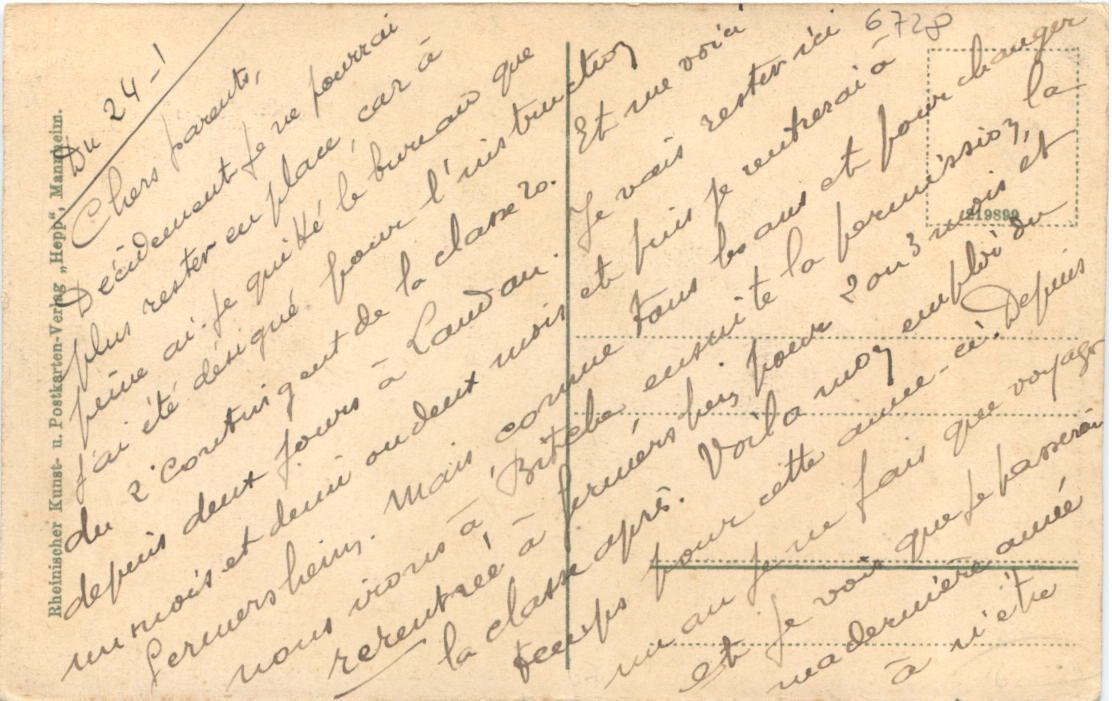 6728
Du 24-1
Chers parents,
Décidement je ne pourrai
plus rester en place, car à
peine ai-je quitté le bureau que
j'ai été désigné pour l'instruction
du 2e contingent de la classe 20. Et me voici
depuis deux jours à Landau. Je vais rester ici
un mois et demi ou deux mois et puis je rentrerai à
Germersheim. Mais comme tous les ans et pour changer
nous irons à Bitche ensuite la permission, la
rerentrée à Germersheim pour 2 ou 3 mois et
la classe après. Voila mon emploi du
temps pour cette année-ci. Depuis
un an je ne fais que voyager
et je vois que je passerai
ma dernière année
à n'être
Rheinischer Kunst- u. Postkarten-Verlag „Hepp“, Mannheim.
219899